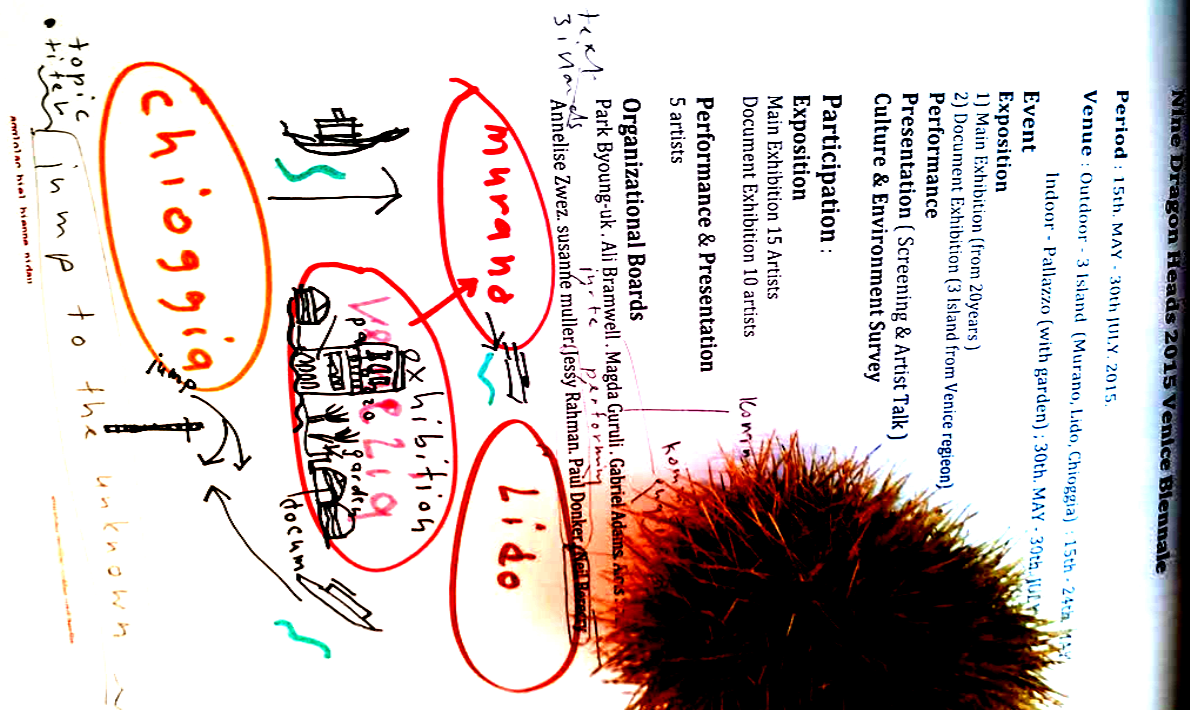 Nine Dragon Heads 2015 Venice Biennale
Period : 15th. MAY - 30th JULY. 2015.
Venue : Outdoor - 3 Island (Murano, Lido, Chioggia) : 15th - 24th. MAY
Indoor - Pallazzo (with garden) : 30th. MAY - 30th. JULY
Event
Exposition
1) Main Exhibition (from 20years )
2) Document Exhibition (3 Island from Venice regieon)
Performance
Presentation ( Screening & Artist Talk )
Culture & Environment Survey
Participation :
Exposition
Main Exhibition 15 Artists
Document Exhibition 10 artists
Performance & Presentation
5 artists
Organizational Boards
Park Byoung-uk . Ali Bramwell . Magda Guruli . Gabriel Adams.
Annelise Zwez. susanne muller(Jessy Rahman. Paul Donker
text
3 islands
performing
murano
Lido
exhibition
garden
docum
chioggia
jump
topic
jump to the unknown